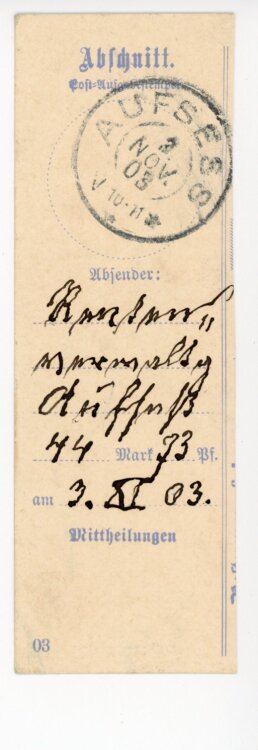 Abschnitt.
Post-Aufgabestempel
AUFSESS
3
NOV.
03
V 10-11
Absender:
Renten„
verwaltg
Aufseß
44 Mark 73 Pf.
am 3. XI 03.
Mittheilungen
03